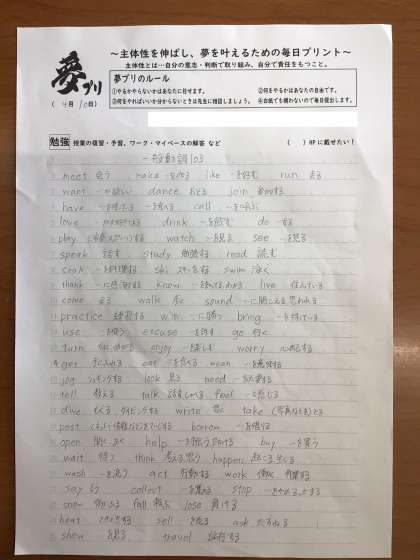 ～主体性を伸ばし、夢を叶えるための毎日プリント～
主体性とは…自分の意志・判断で取り組み、自分で責任をもつこと。
夢プリ
(4月10日)
夢プリのルール
①やるかやらないかはあなたに任せます。 ②何をやるかはあなたの自由です。
③何をやればいいか分からないときは先生に相談しましょう。 ④白紙でも構わないので毎日提出します。
勉強 授業の復習・予習、ワーク・マイペースの解答 など ( )HPに載せたい！
一般動詞103
meet 会う make ～を作る like ～を好む run 走る
want ～が欲しい dance おどる join 参加する
have ～を食べる call ～を呼ぶ
love drink ～を飲む do ～する
play watch ～を見る see ～を見る
speak 話す study 勉強する read 読む
cook ～を料理する ski スキーをする swim 泳ぐ
thank ～に感謝する know ～を知っている live 住んでいる
come 来る walk 歩く sound ～に聞こえる
practice 練習する win ～に勝つ bring
use ～を使う excuse ～を許す go 行く
turn enjoy ～を楽しむ worry 心配する
get 手に入れる eat ～を食べる mean ～を意味する
jog ジョギングする look 見る need ～が必要である
tell 教える talk feel ～と感じる
dive もぐる write 書く take
post borrow ～を借りる
open 開く help buy ～を買う
wait 待つ think 考える, 思う happen 起こる
wash ～を洗う act 行動する work 働く
say 言う collect ～を集める stop
snow 雪がふる fall lose 負ける
beat sell ～を売る ask たずねる
show ～を見せる travel 旅行する